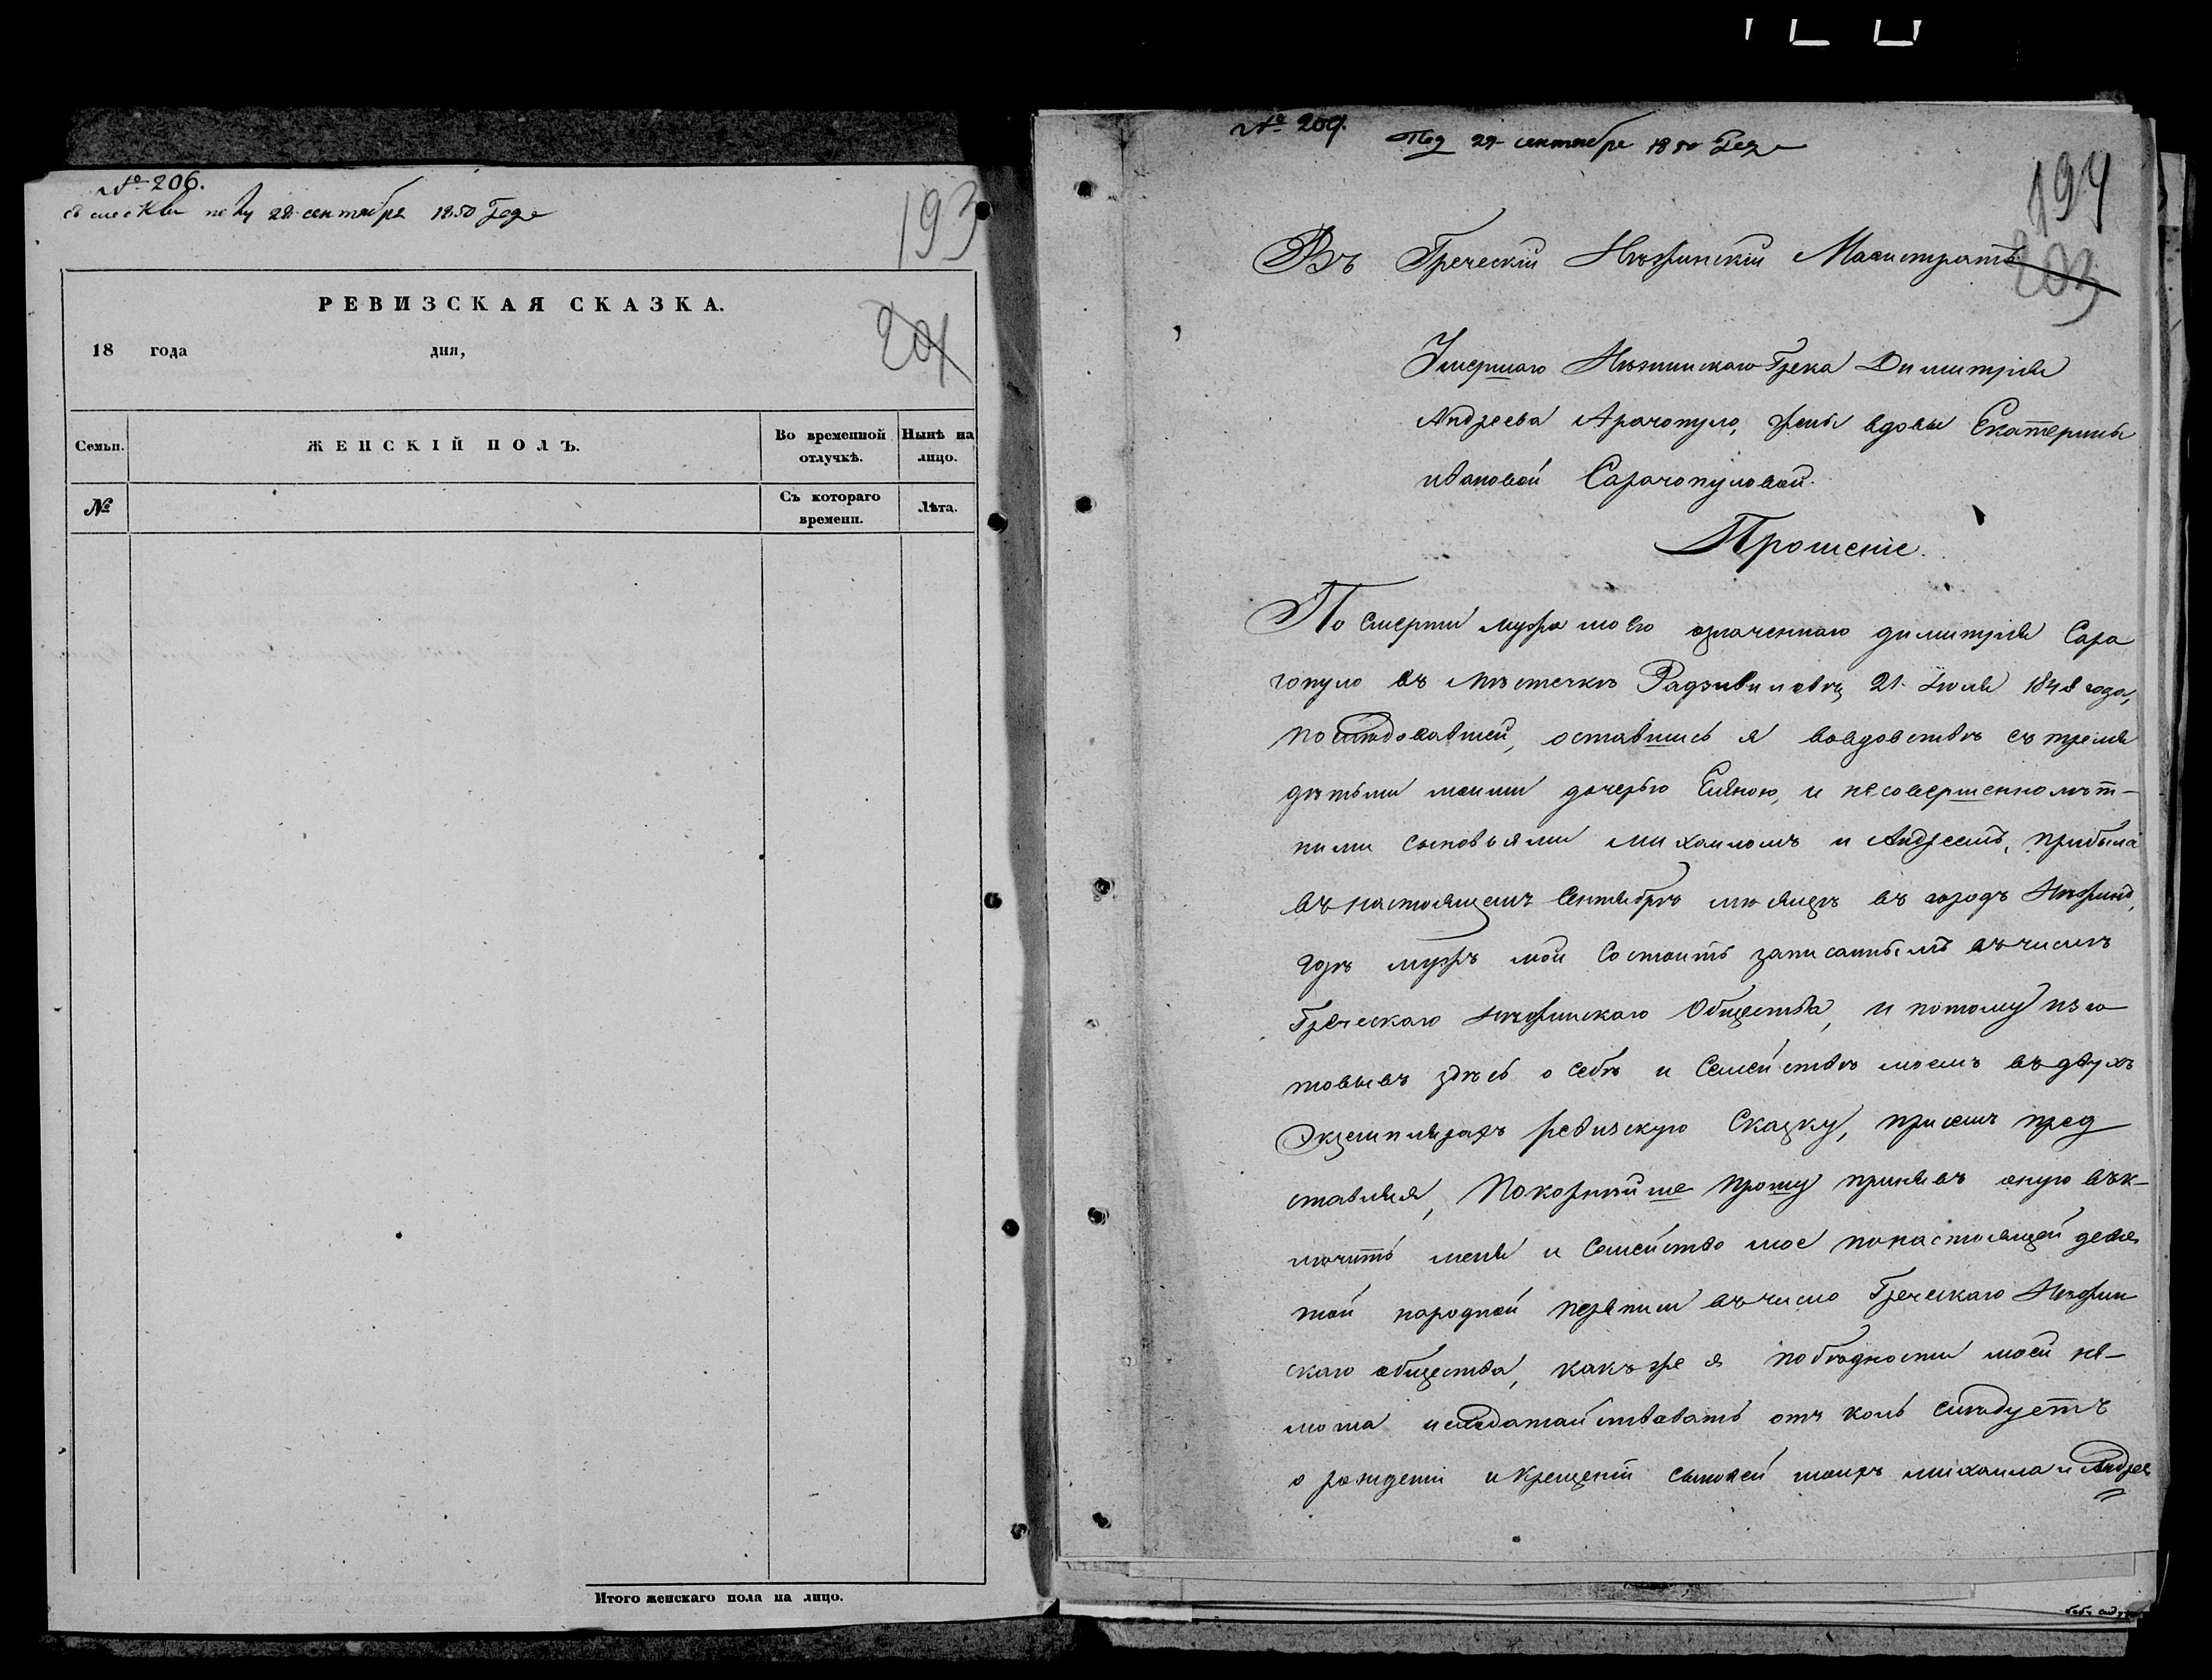 № 206.
28 сентября 1850 года
193
201
РЕВИЗСКАЯ СКАЗКА.
18 года дня,
Семьи. ЖЕНСКІЙ ПОЛЪ. Во временной отлучкѣ. Нынѣ на лицо.
№ Съ котораго времени. Лѣта.
Итого женскаго пола на лицо.
№ 209. Под 29 сентября 1850 года
194
203
Въ Греческій Нѣжинскій Магистратъ
Умершаго Нѣжинскаго Грека Димитрія
Андреева Арачопуло, жены вдовы Екатерины
ивановой Сарачопуловой.
Прошеніе.
По смерти мужа моего означеннаго димитрія Сара
чопуло въ мѣстечкѣ Радзивиловѣ, 21 Іюля 1848 года,
последовавшей, оставшись я вовдовствѣ съ тремя
дѣтьми моими дочерью Еленою, и несовершеннолѣт-
ними сыновьями михаиломъ и Андреемъ, прибыла
въ настоящемъ Сентябрѣ мѣсяцѣ въ городъ Нѣжинъ,
гдѣ мужъ мой состоитъ записаннымъ въ числѣ
Греческаго нѣжинскаго Общества, и потому изго
товивъ здѣсь о себѣ и Семействѣ моемъ въ двухъ
Экземплярахъ ревизскую Сказку, при семъ пред
ставляя, Покорнѣйше прошу принявъ оную вък-
лючить меня и Семейство мое понастоящей девя
той народной переписи въ число Греческаго Нѣжин
скаго общества, какъ же я побѣдности моей не-
могла исходатайствовать отъ коль слѣдуетъ
о рожденіи и крещеніи сыновей моихъ михаила и Андрея